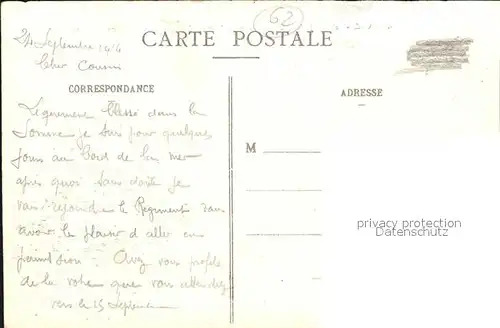 62
CARTE POSTALE
24 Septembre 1916
Cher Cousin
CORRESPONDANCE
ADRESSE
Légèrement blessé dans la
Somme je suis pour quelques
jours au bord de la mer
après quoi sans doute je
vais rejoindre le Régiment sans
avoir le plaisir d'aller en
permission. Avez vous profité
de la votre que vous attendiez
vers le 15 Septembre
M
privacy protection
Datenschutz